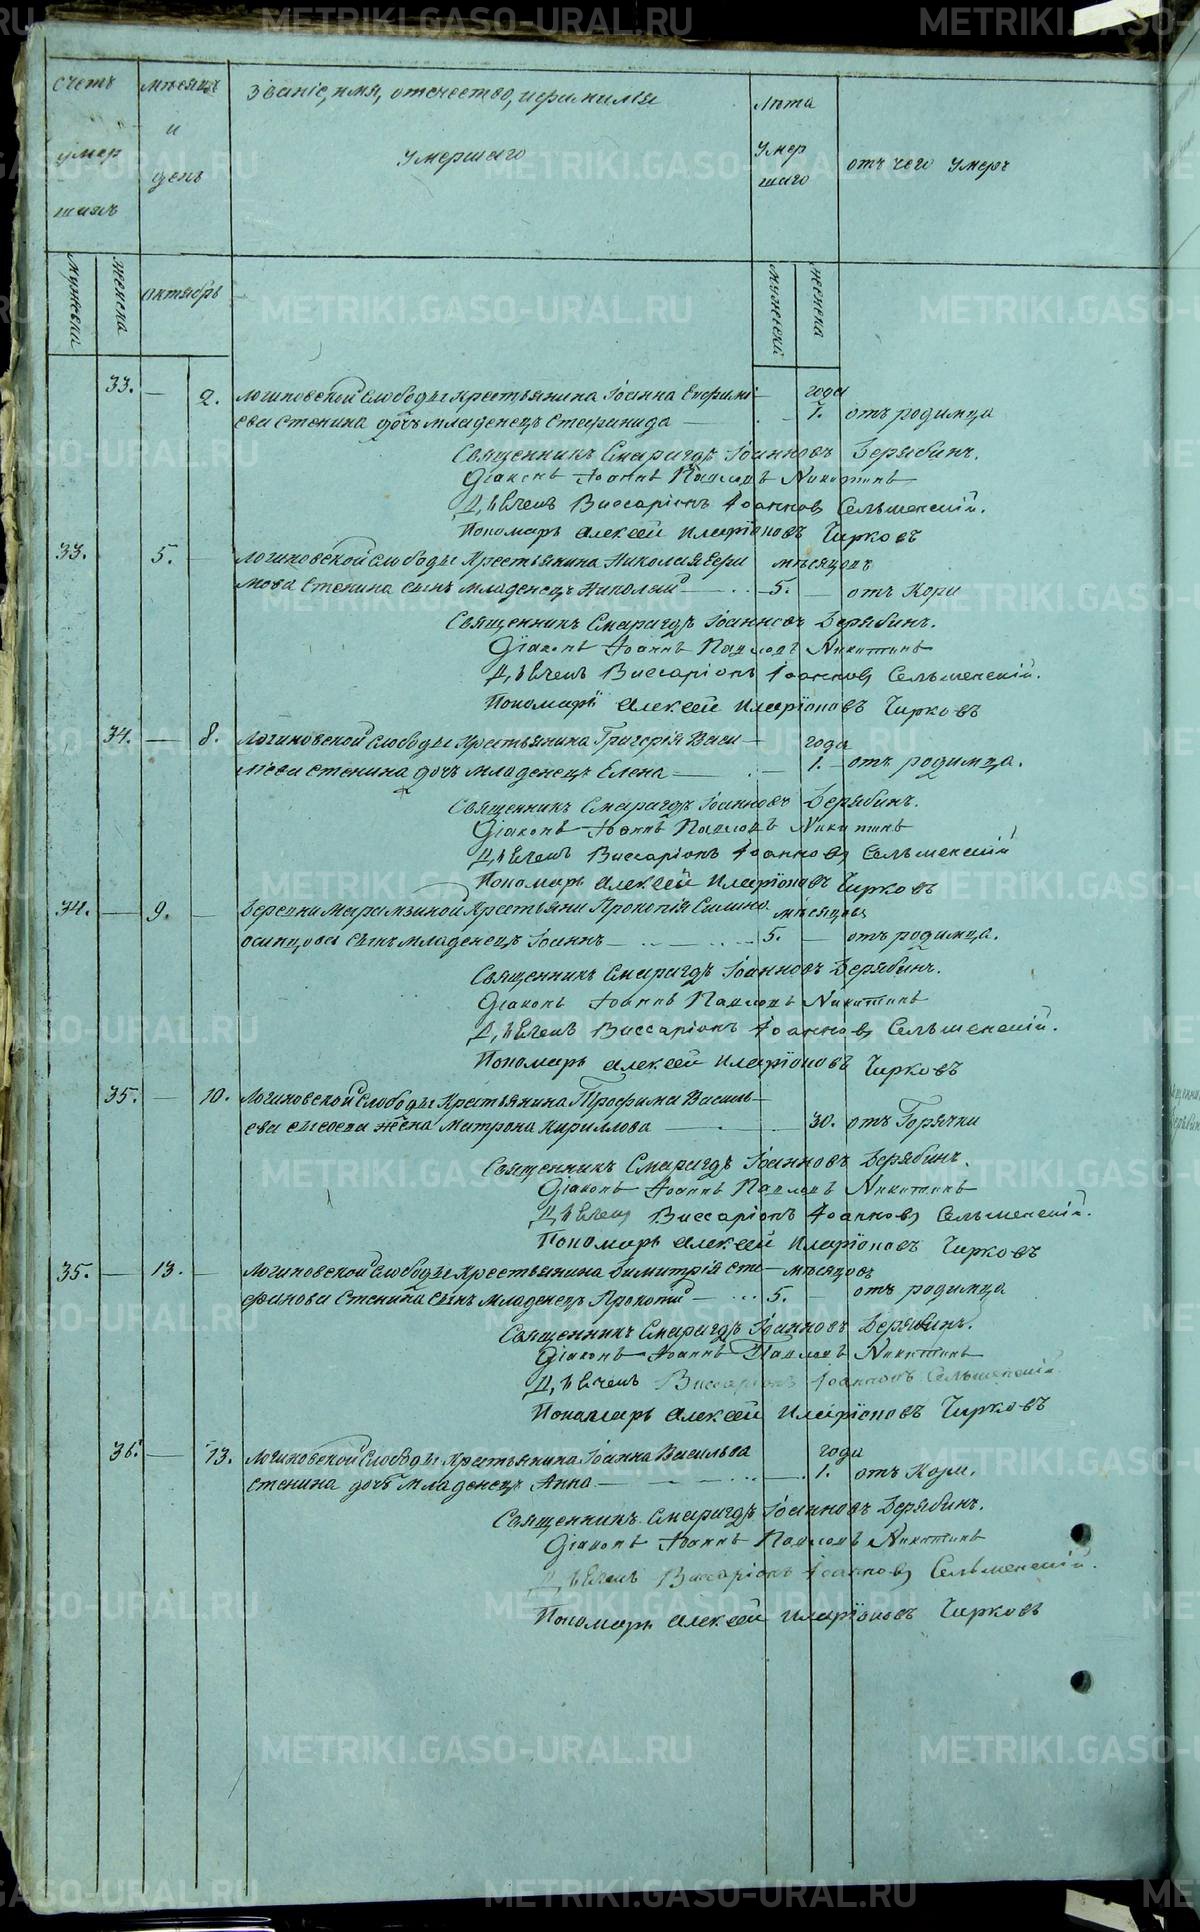 Счетъ умер шихъ
мѣсяцъ и день
Званіе, имя, отечество, и фамилія умершаго
Лѣта умер шаго
отъ чего умеръ
мужеска
женска
октябрь
мужеска
женска
33. — 2. Логиновской слободы крестьянина Іоанна Ефрим- года
ова Стенина дочь младенецъ Стефанида — 1. отъ родимца
Священникъ Смарагдъ Іоанновъ Дерябинъ.
Діаконъ Іоаннъ Павловъ Никитинъ
Дьячекъ Виссаріонъ Іоанновъ Сельменскій.
Пономарь Алексей Иларіоновъ Чирковъ
33. 5. — Логиновской слободы крестьянина Николая Ефри мѣсяцовъ
мова Стенина сынъ младенецъ Николай — 5. — отъ Кори
Священникъ Смарагдъ Іоанновъ Дерябинъ.
Діаконъ Іоаннъ Павловъ Никитинъ
Дьячекъ Виссаріонъ Іоанновъ Сельменскій.
Пономарь Алексей Иларіоновъ Чирковъ
34. — 8. Логиновской слободы крестьянина Григорія Васи — года
льева Стенина дочь младенецъ Елена — 1. — отъ родимца.
Священникъ Смарагдъ Іоанновъ Дерябинъ.
Діаконъ Іоаннъ Павловъ Никитинъ
Дьячекъ Виссаріонъ Іоанновъ Сельменскій
Пономарь Алексей Иларіоновъ Чирковъ
34. — 9. — Деревни Марамзиной крестьяни Прокопія мѣсяцовъ
осинцова сынъ младенецъ Іоаннъ — 5. — отъ родимца.
Священникъ Смарагдъ Іоанновъ Дерябинъ.
Діаконъ Іоаннъ Павловъ Никитинъ
Дьячекъ Виссаріонъ Іоанновъ Сельменскій.
Пономарь Алексей Иларіоновъ Чирковъ
35. — 10. Логиновской слободы крестьянина Трофима Василь —
ева Сысоева жена Матрона Кириллова — 30. отъ Горячки
Священникъ Смарагдъ Іоанновъ Дерябинъ.
Діаконъ Іоаннъ Павловъ Никитинъ
Дьячекъ Виссаріонъ Іоанновъ Сельменскій.
Пономарь Алексей Иларіоновъ Чирковъ
35. — 13. — Логиновской слободы крестьянина Димитрія Сте — мѣсяцовъ
фанова Стенина сынъ младенецъ Прокопій — 5. отъ родимца
Священникъ Смарагдъ Іоанновъ Дерябинъ.
Діаконъ Іоаннъ Павловъ Никитинъ
Дьячекъ Виссаріонъ Іоанновъ Сельменскій.
Пономарь Алексей Иларіоновъ Чирковъ
36. — 13. Логиновской слободы крестьянина Іоанна Васильва года
Стенина дочь младенецъ Анна — 1. отъ Кори.
Священникъ Смарагдъ Іоанновъ Дерябинъ.
Діаконъ Іоаннъ Павловъ Никитинъ
Дьячекъ Виссаріонъ Іоанновъ Сельменскій.
Пономарь Алексей Иларіоновъ Чирковъ
METRIKI.GASO-URAL.RU